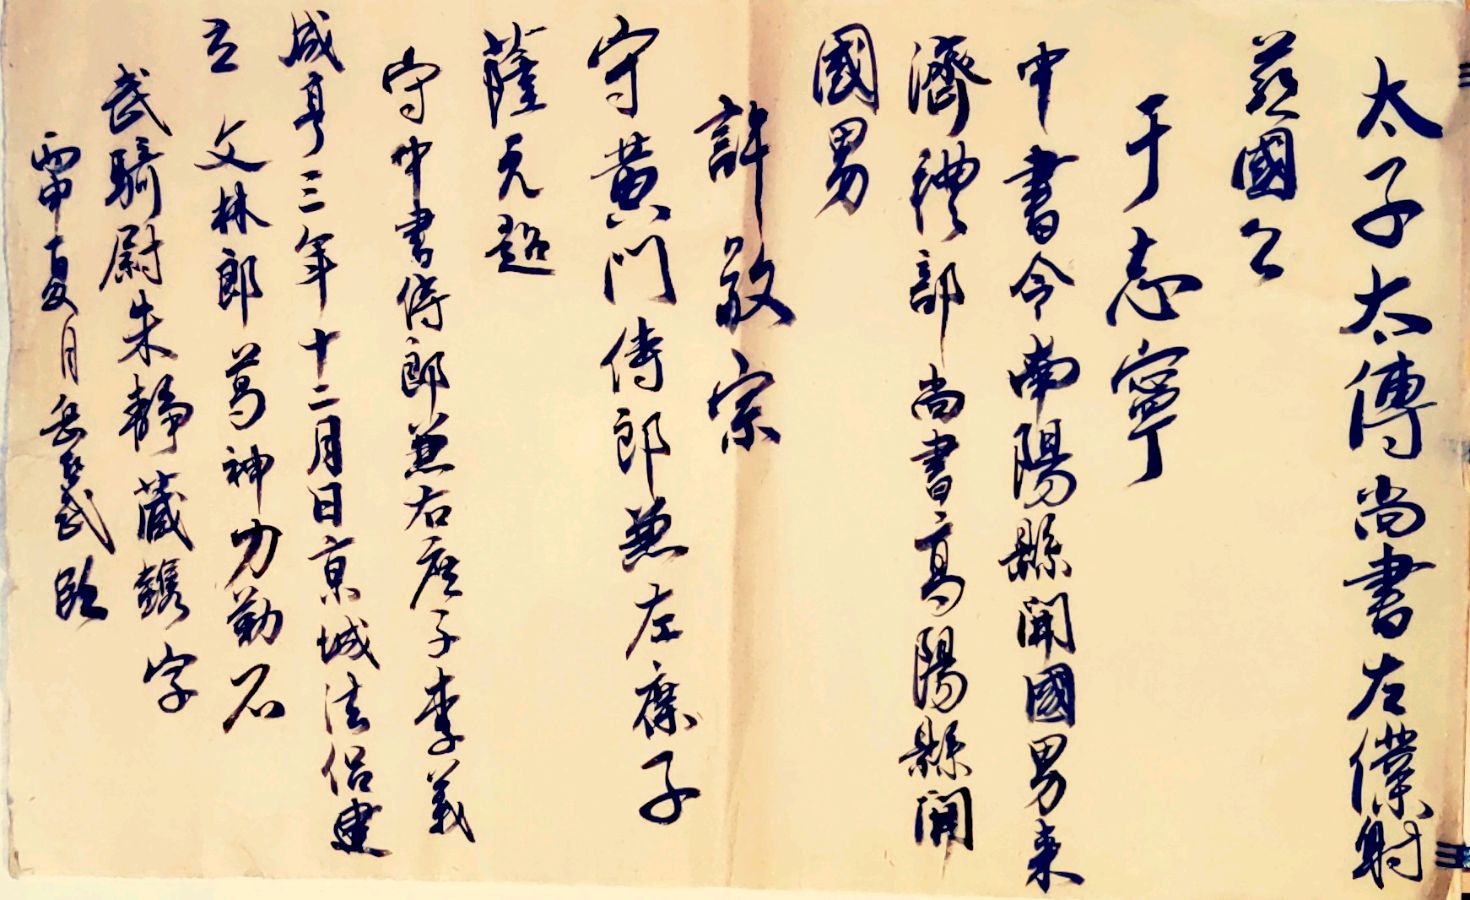 太子太傅尚書左僕射
燕國公
于志寧
中書令南陽縣開國男来
濟禮部尚書高陽縣開
國男
許敬宗
守黄門侍郎兼左庶子
薛元超
守中書侍郎兼右庶子李義
咸亨三年十二月日京城法侣建
立 文林郎葛神力勒石
武騎尉朱靜藏鐫字
丙申夏月岳武臨